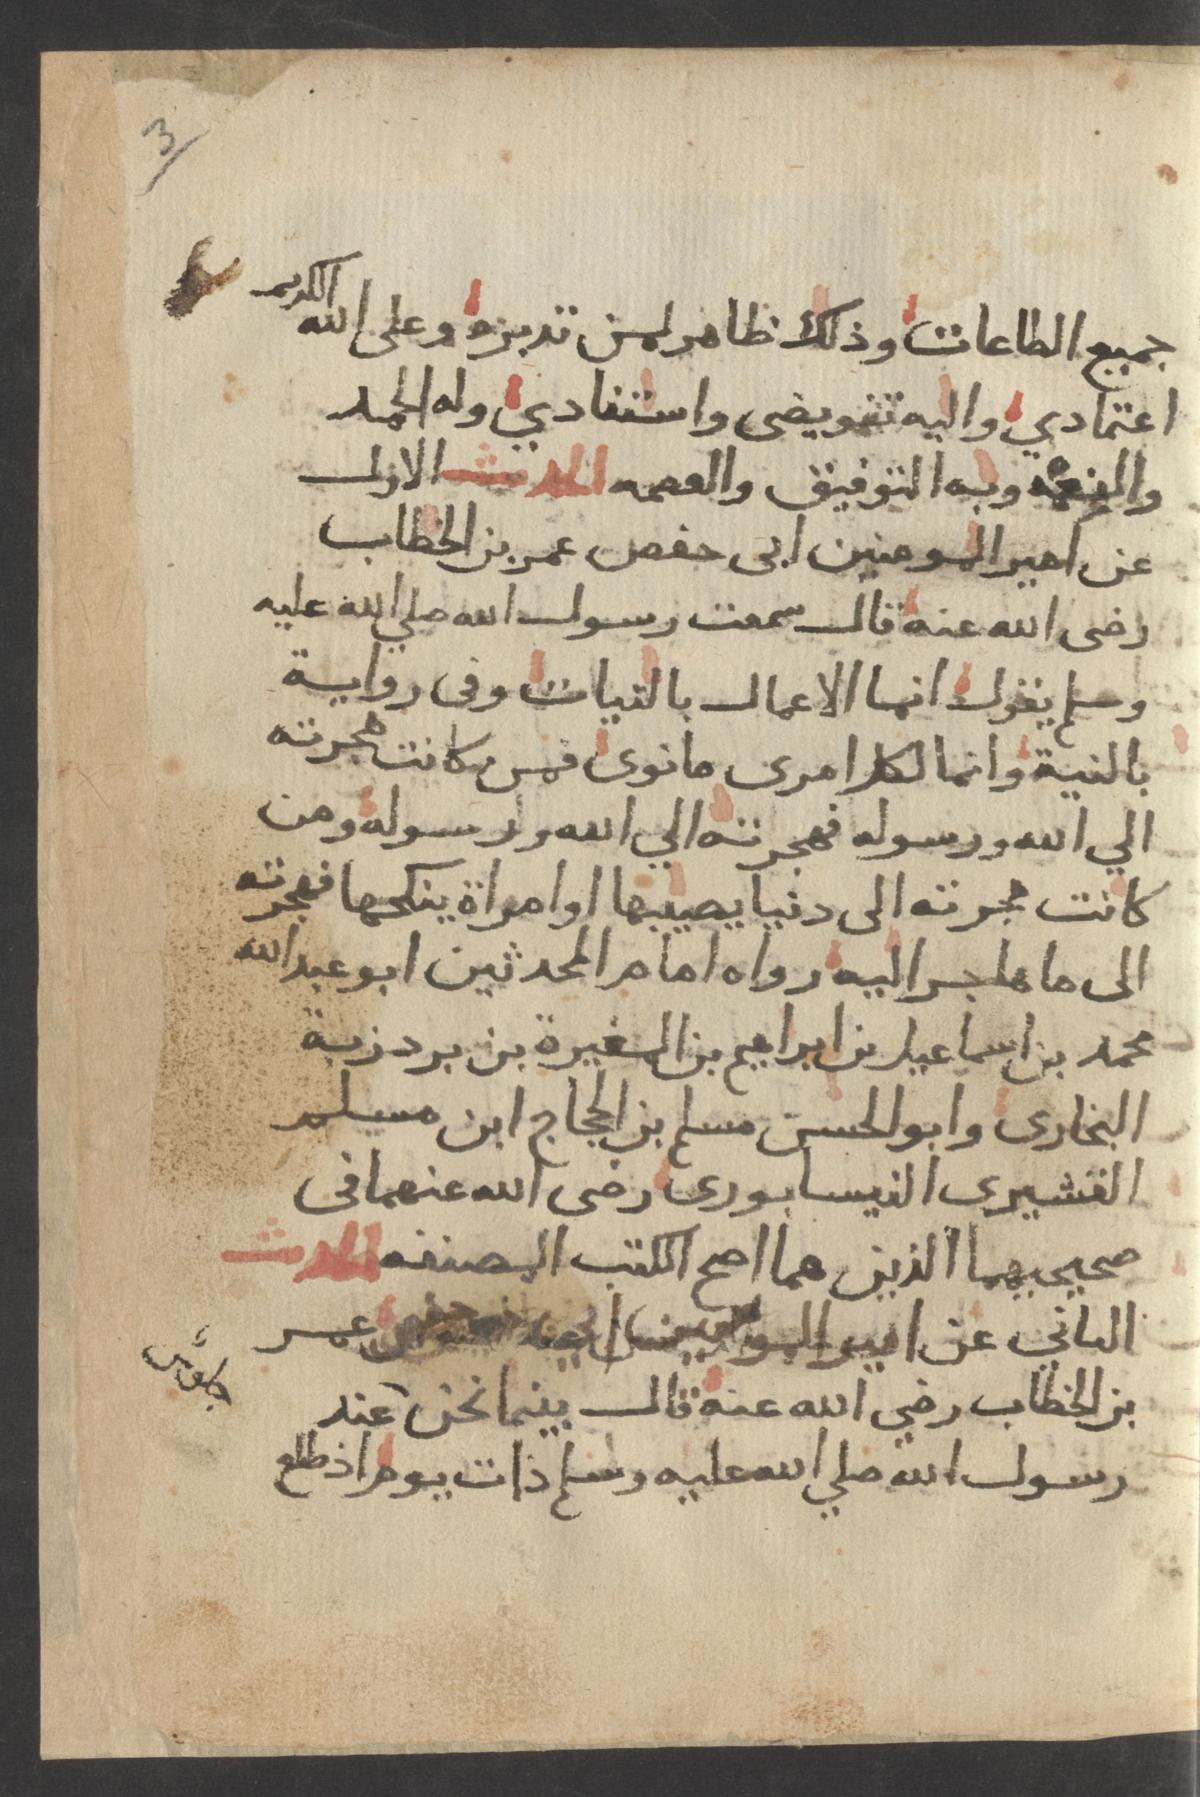 3
جميع الطاعات وذلك ظاهر لمن تدبره وعلى الله الكريم
اعتمادي واليه تفويضى واستنادي وله الحمد
والنعمه وبه التوفيق والعصمه الحديث الاول
عن امير المومنين ابى حفص عمر بن الخطاب
رضى الله عنه قال سمعت رسول الله صلي الله عليه
وسلم يقول انما الاعمال بالنيات وفى رواية
بالنية وانما لكل امرى مانوى فمن كانت هجرته
الي الله ورسوله فهجرته الي الله ورسوله ومن
كانت هجرته الى دنيا يصيبها او امراة ينكحها فهجرته
الى ما هاجر اليه رواه امام المحدثين ابو عبد الله
محمد بن اسماعيل بن ابراهيم بن المغيرة بن بردزبة
البخارى وابو الحسين مسلم بن الحجاج ابن مسلم
القشيرى النيسابورى رضى الله عنهما فى
صحيحيهما الذين هما اصح الكتب المصنفه الحديث
الثاني عن امير المومنين عمر
بن الخطاب رضي الله عنه قال بينما نحن عند
رسول الله صلي الله عليه وسلم ذات يوم اذ طلع